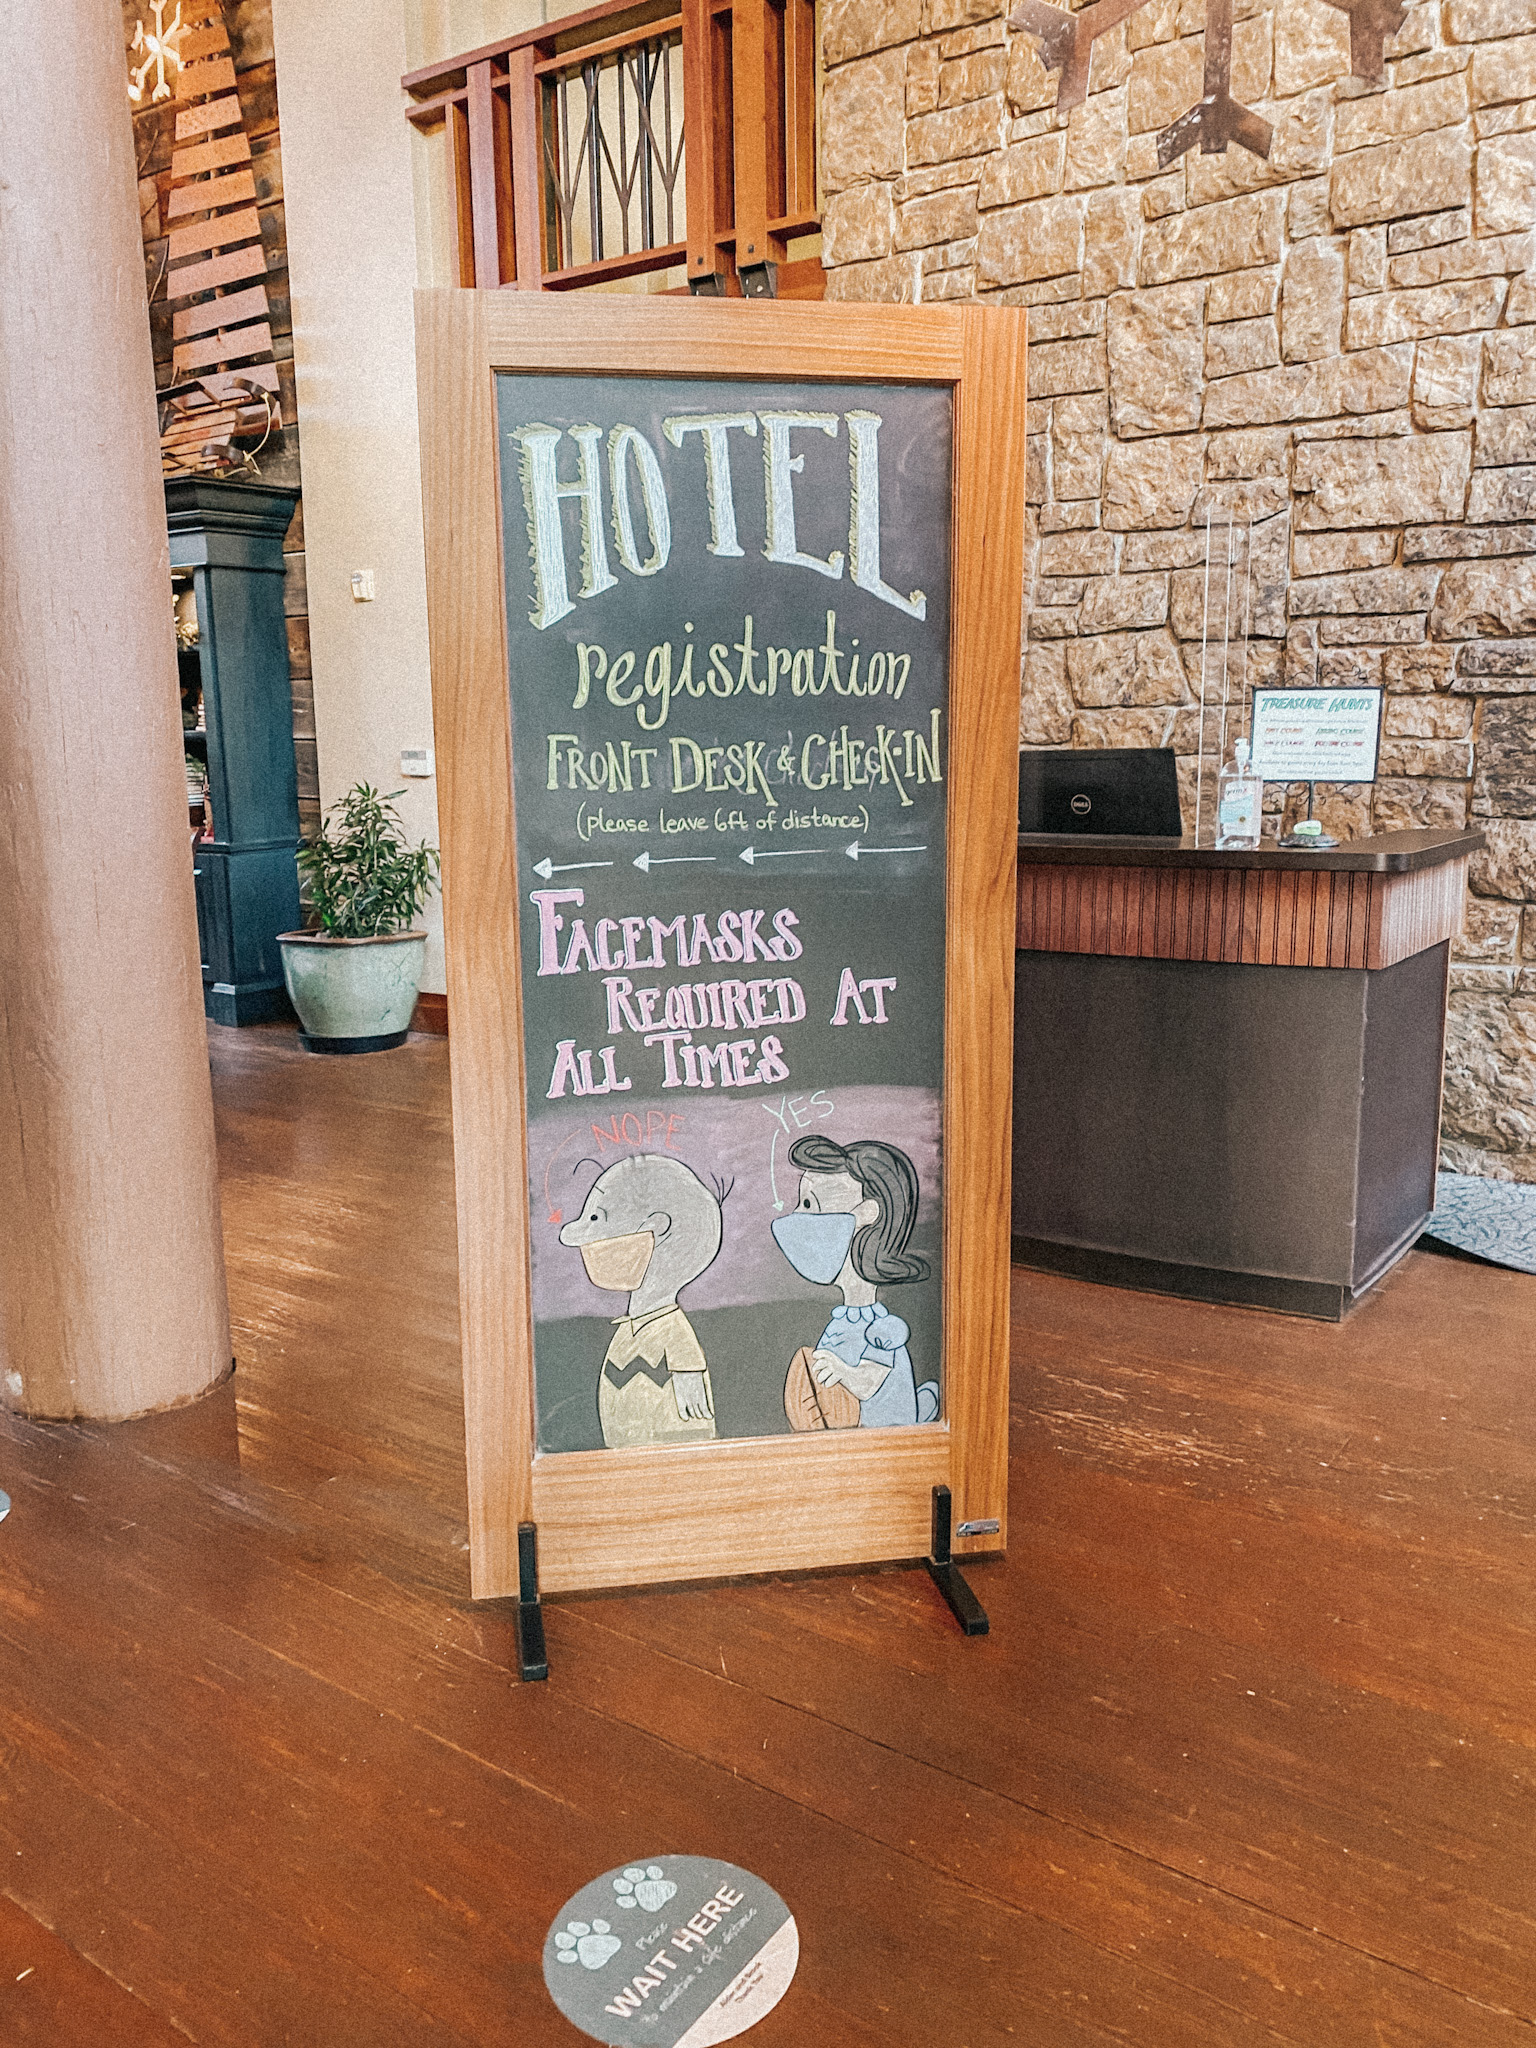 HOTEL
registration
FRONT DESK & CHECK-IN
(please leave 6ft of distance)
FACEMASKS
REQUIRED AT
ALL TIMES
NOPE
YES
TREASURE HUNTS
DELL
Please
WAIT HERE
To maintain a safe distance